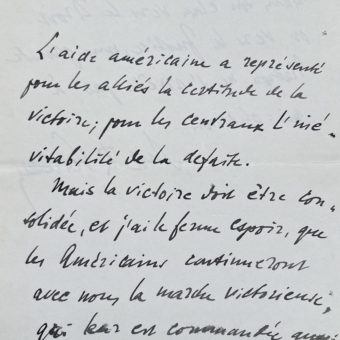 L'aide américaine a représenté
pour les alliés la certitude de la
victoire; pour les centraux l'iné-
vitabilité de la défaite.
Mais la victoire doit être con-
solidée, et j'ai le ferme espoir, que
les Américains continueront
avec nous la marche victorieuse,
qui leur est commandée aussi